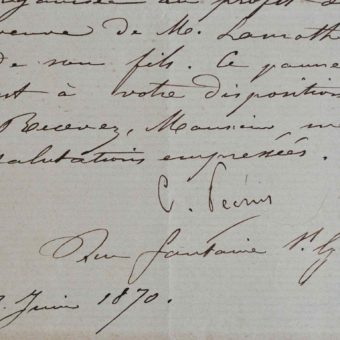 au profit d
veuve de M. Lamoth
de son fils. Ce
à votre disposition
Recevez, Monsieur, m
salutations empressées.
C.
Rue Fontaine St. G
Juin 1870.